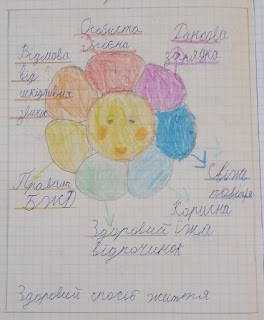 Особиста
гігієна
Ранкова
зарядка
Відмова
від
шкідливих
звичок
Свіже
повітря
Корисна
їжа
Здоровий
відпочинок
Правила
БЖД
Здоровий спосіб життя